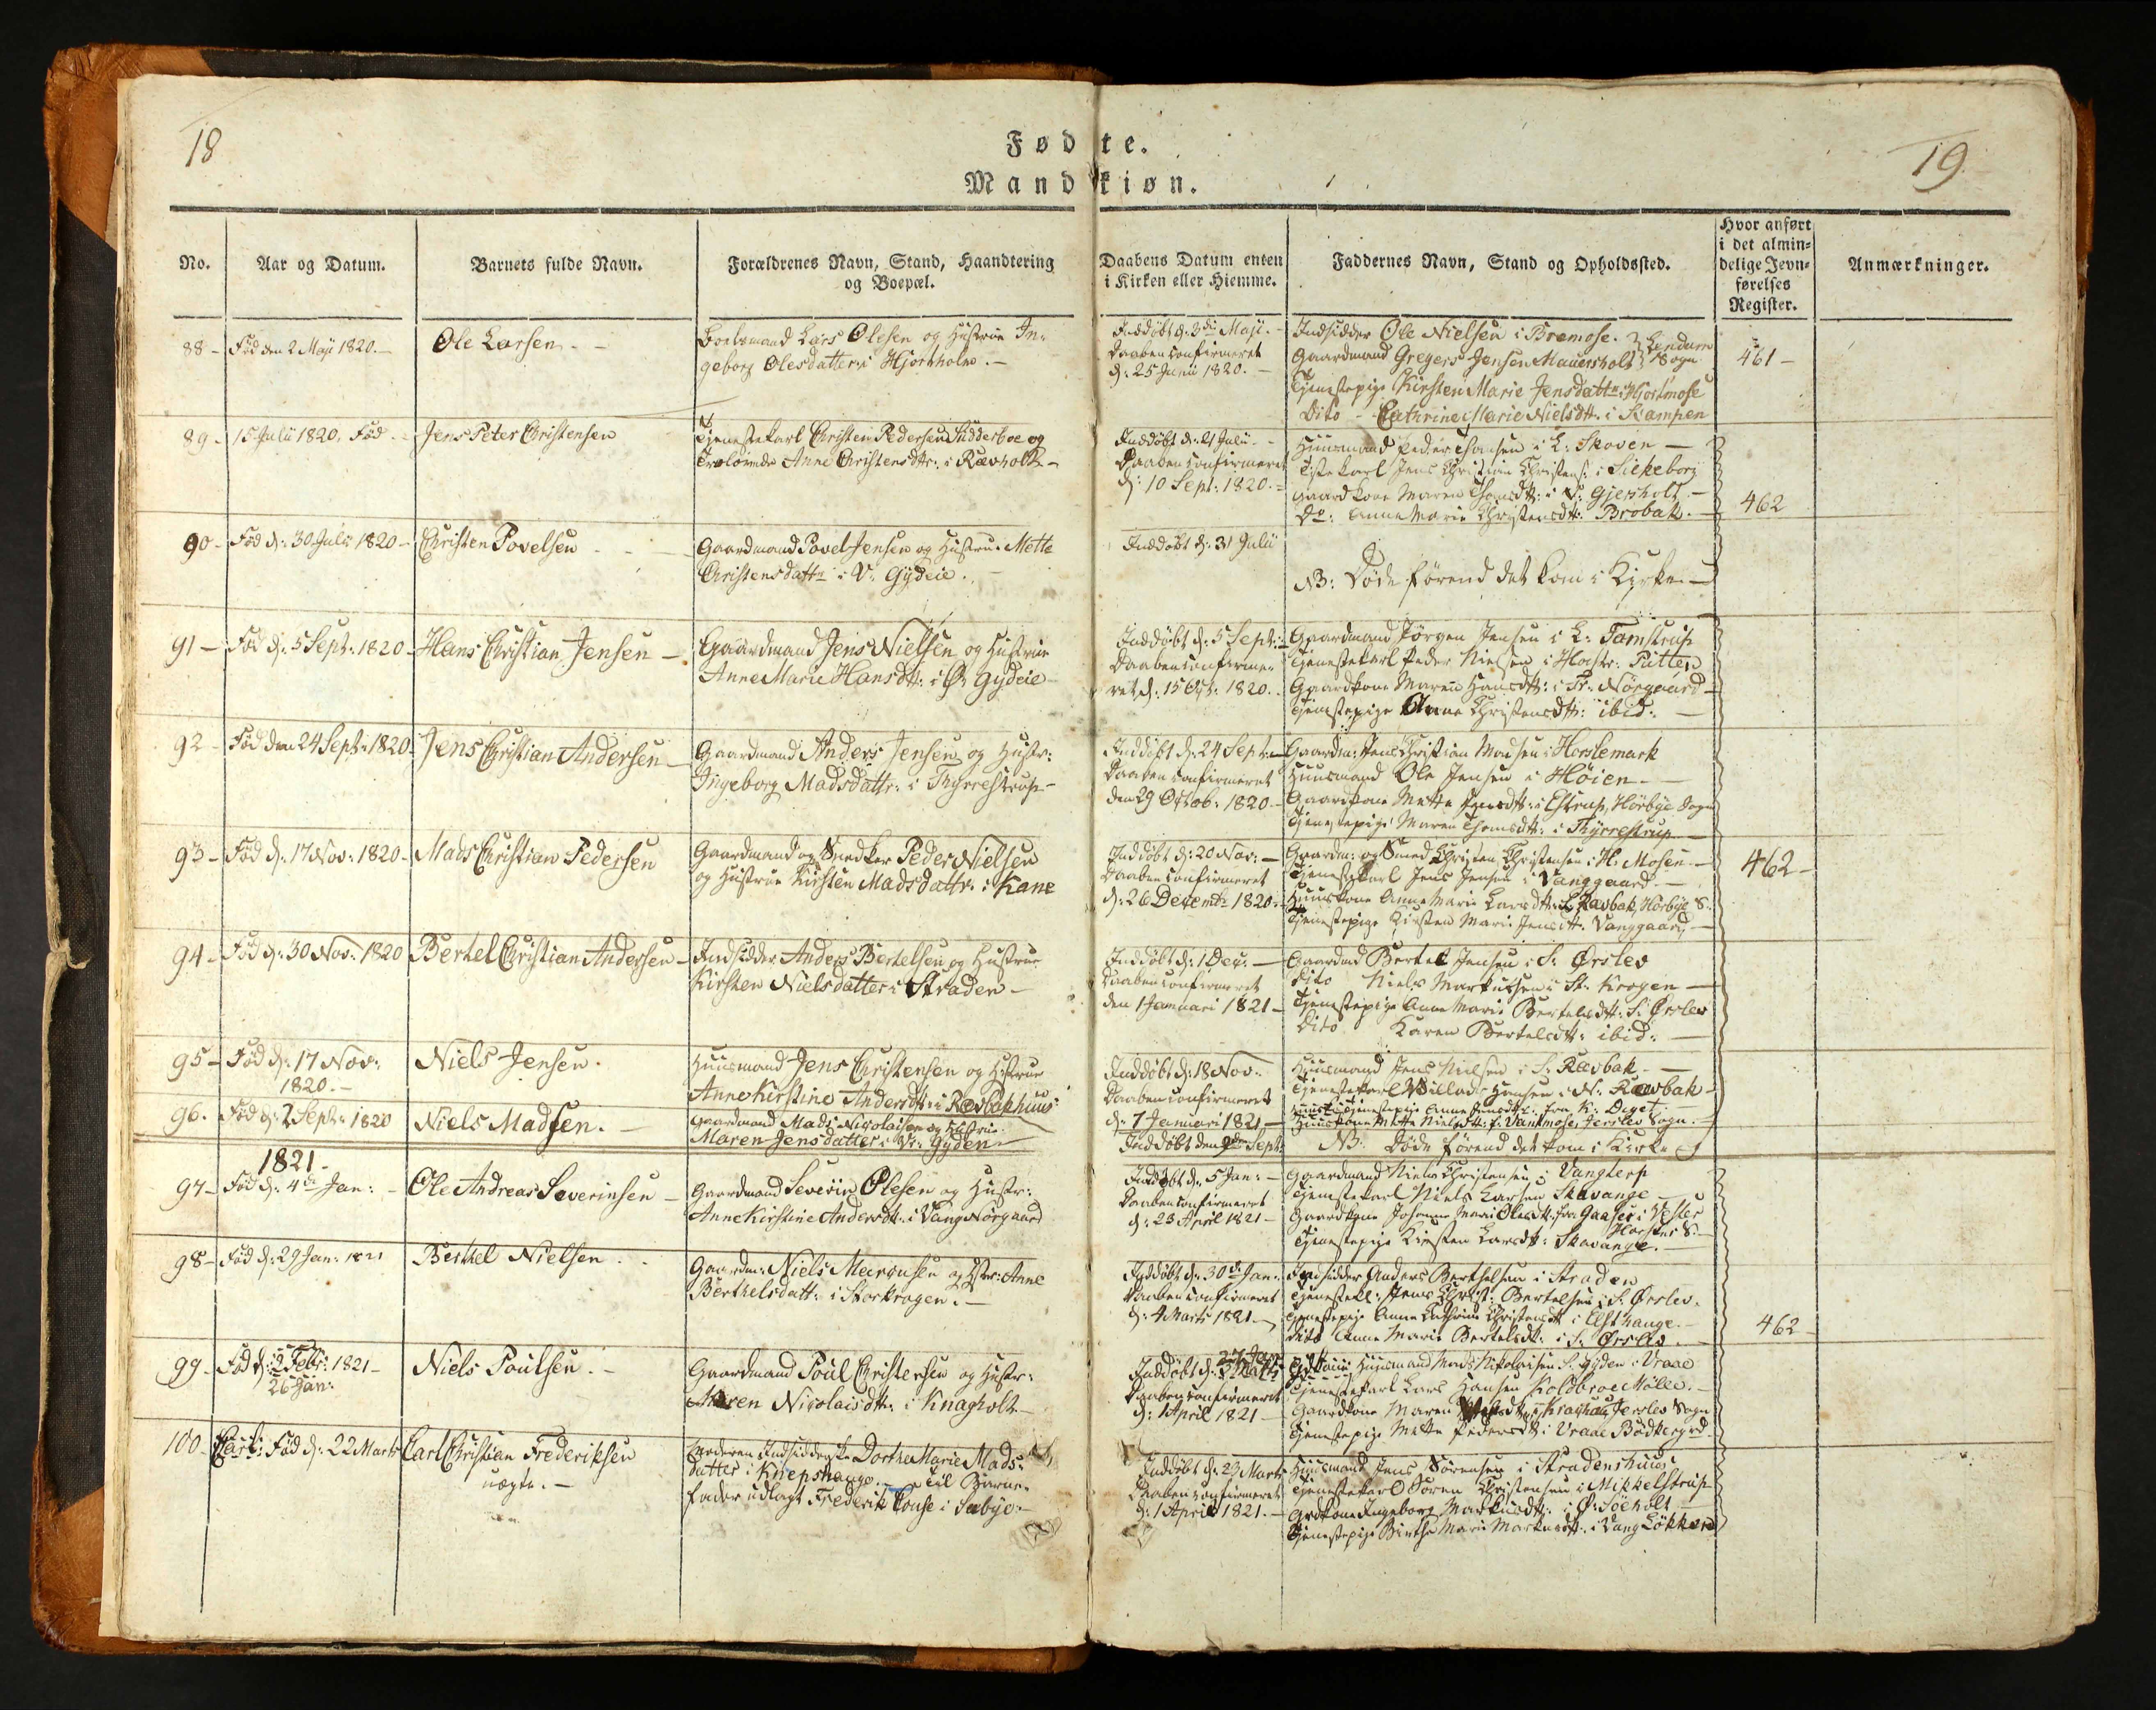 18
Fødte.
19
Mandkiøn.
No.
Aar og Datum.
Barnets fulde Navn.
Forældrenes Navn, Stand, Haandtering
og Boepæl.
Daabens Datum enten
i Kirken eller Hiemme.
Faddernes Navn, Stand og Opholdssted.
Hvor anført
i det almin=
delige Jevn=
førelses
Register.
Anmærkninger.
88 - Fød den 2 Maji 1820. -
Ole Larsen - -
Boelsmand Lars Olesen og Hustrue In=
geborg Olesdatter i Hjortholm. -
Inddøbt d. 3die Maji. -
Daaben confirmeret
d: 25 Junii 1820. -
Indsidder Ole Nielsen i Bremose.
Gaardmand Gregers Jensen Mauersholt
Lendum
Sogn
Tjenestepige Kirsten Marie Jensdattr i Hjortmose
Dito - Cathrine Marie Nielsdtr. i Kampen
461 -
89 - 15 Julii 1820. Fød -
Jens Peter Christensen
Tjenestekarl Christen Pedersen Sudderboe og
Trolovede Anne Christensdtr. i Ravholt -
Inddøbt d: 21 Julii -
Daaben confirmeret
d: 10 Sept: 1820. =
Huusmand Peder Hansen i L: Skoven -
Tjstekarl Jens Christian Christens: i Siekeborg
Gaardkone Maren Thomsdtr: i V: Gjersholt -
Do: Anne Marie Christensdtr. Brobak. -
462
90 - Fød d: 30 Julii 1820 -
Christen Povelsen - -
Gaardmand Povel Jensen og Hustrue Mette
Christensdattr i V: Gydeie. -
Inddøbt d: 31 Julii
NB: Døde førend det kom i Kirke -
91 - Fød d: 5 Sept: 1820 -
Hans Christian Jensen -
Gaardmand Jens Nielsen og Hustrue
Anne Marie Hansdtr: i Ø: Gydeie -
Inddøbt d: 5 Sept: -
Daaben confirme=
ret d: 15 Oct: 1820. -
Gaardmand Jørgen Jensen i L: Tamstrup
Tjenestekarl Peder Nielsen i Horstr: Pütten
Gaardkone Maren Hansdtr: i Tr: Nørgaard -
Tjenestepige Anne Christensdtr: ibid: -
92 - Fød den 24 Sept: 1820 -
Jens Christian Andersen -
Gaardmand Anders Jensen og Hustr:
Ingeborg Madsdattr: i Thyrrestrup -
Inddøbt d: 24 Sept: -
Daaben confirmeret
den 29 Octob: 1820. -
Gaardm: Jens Christian Madsen i Horslemark
Huusmand Ole Jensen i Høien -
Gaardkone Mette Jensdtr: i Estrup, Hörbye Sogn
Tjenestepige Maren Thomsdtr: i Thyrrestrup -
93 - Fød d: 17 Nov: 1820 -
Mads Christian Pedersen
Gaardmand og Snedker Peder Nielsen
og Hustrue Kirsten Madsdattr: i Kane
Inddøbt d: 20 Nov: -
Daaben confirmeret
d: 26 Decembr 1820. -
Gaardm: og Smed Christen Christensen i H: Mosen -
Tjenestekarl Jens Jensen i Vanggaard -
Huuskone Anne Marie Larsdtr: L. Ravbak, Hörbye S.
Tjenestepige Kirsten Marie Jensdtr. Vanggaard -
462 -
94 - Fød d: 30 Nov: 1820
Bertel Christian Andersen -
Indsidder Anders Bertelsen og Hustrue
Kirsten Nielsdatter i Straden -
Inddøbt d: 1 Dec: -
Daaben confirmeret
den 1 Januari 1821 -
Gaardmd Bertel Jensen i S: Ørslev
Dito Niels Markussen i St: Krogen -
Tjenestepige Anne Marie Bertelsdtr: S: Ørslev
Dito Karen Bertelsdtr: ibid: -
95 - Fød d: 17 Nov:
1820. -
Niels Jensen.
Huusmand Jens Christensen og Hustrue
Anne Kirstine Andersdtr: i Rævbakhuus
Inddøbt d: 18 Nov: -
Daaben confirmeret
d: 7 Januari 1821 -
Huusmand Jens Nielsen i S. Rævbak -
Tjenestekarl Willads Hansen i N: Rævbak -
Tjenestepige Anne Jensdtr: fra K: Deget -
Huuskone Mette Nielsdtr: fr Vantmose, Jerslev Sogn. -
96. Fød d: 2 Septr 1820
Niels Madsen. -
Gaardmand Mads Nicolaisen og Hustrue
Maren Jensdatter i Vr: Gyden -
Inddøbt den Sept:
NB: Døde førend det kom i Kirke
1821 -
97 - Fød d: 4de Jan: -
Ole Andreas Severinsen -
Gaardmand Severin Olesen og Hustr:
Anne Kirstine Andersdtr. i Vang Nørgaard
Inddøbt d: 5 Jan: -
Daaben confirmeret
d: 23 April 1821 -
Gaardmand Niels Christensen i Vangterp
Tjenestekarl Niels Larsen Skavange -
Gaardkone Johanne Marie Olesdtr: fra Gaaser i Vester
Hassing S. -
Tjenestepige Kirsten Larsdtr: Skavange. -
98 - Fød d: 29 Jan: 1821
Berthel Nielsen. .
Gaardm: Niels Marcusen og Hstr: Anne
Berthelsdatt: i Storkrogen. -
Inddøbt d: 30te Jan:
Daaben confirmeret
d: 4 Marts 1821. -
Indsidder Anders Berthelsen i Straden
Tjenestekl: Jens Christ: Bertelsen i S: Ørslev.
Tjenestepige Anne Cathrine Christensdtr i Elsthauge. -
Dito Anne Marie Bertelsdtr: i S: Ørslev. -
462 -
99 - Fød d: 2 Febr: 1821 -
26 Jan:
Niels Poulsen. -
Gaardmand Poul Christensen og Hustr:
Maren Nicolaisdtr: i Knagholt -
27 Jan
Inddøbt d:
Daaben confirmeret
d: 1 April 1821 -
Huusmand Mads Nikolaisen S. Gyden i Vraae
Tjenestekarl Lars Hansen Koldbroe Mølle. -
Gaardkone Maren i Kraghaug Jerslev Sogn
Tjenestepige Mette Pedersdtr i Vraae Bødkergrd
100 - Fød d: 22 Marts
Carl Christian Frederiksen
uægte. -
Moderen Indsidderske Dorthe Marie Mads=
datter i Knepshauge. - Til Barne=
fader udlagt Frederik Pouse i Sæbye. -
Inddøbt d: 23 Marts
Daaben confirmeret
d: 1 April 1821. -
Huusmand Jens Sörensen i Stradenshuus
Tjenestekarl Sören Christensen i Mikkelstrup
Grdkone Ingeborg Markusdtr: i Ø: Söeholt -
Tjenestepige Birthe Marie Markusdtr. i Vang Løkken